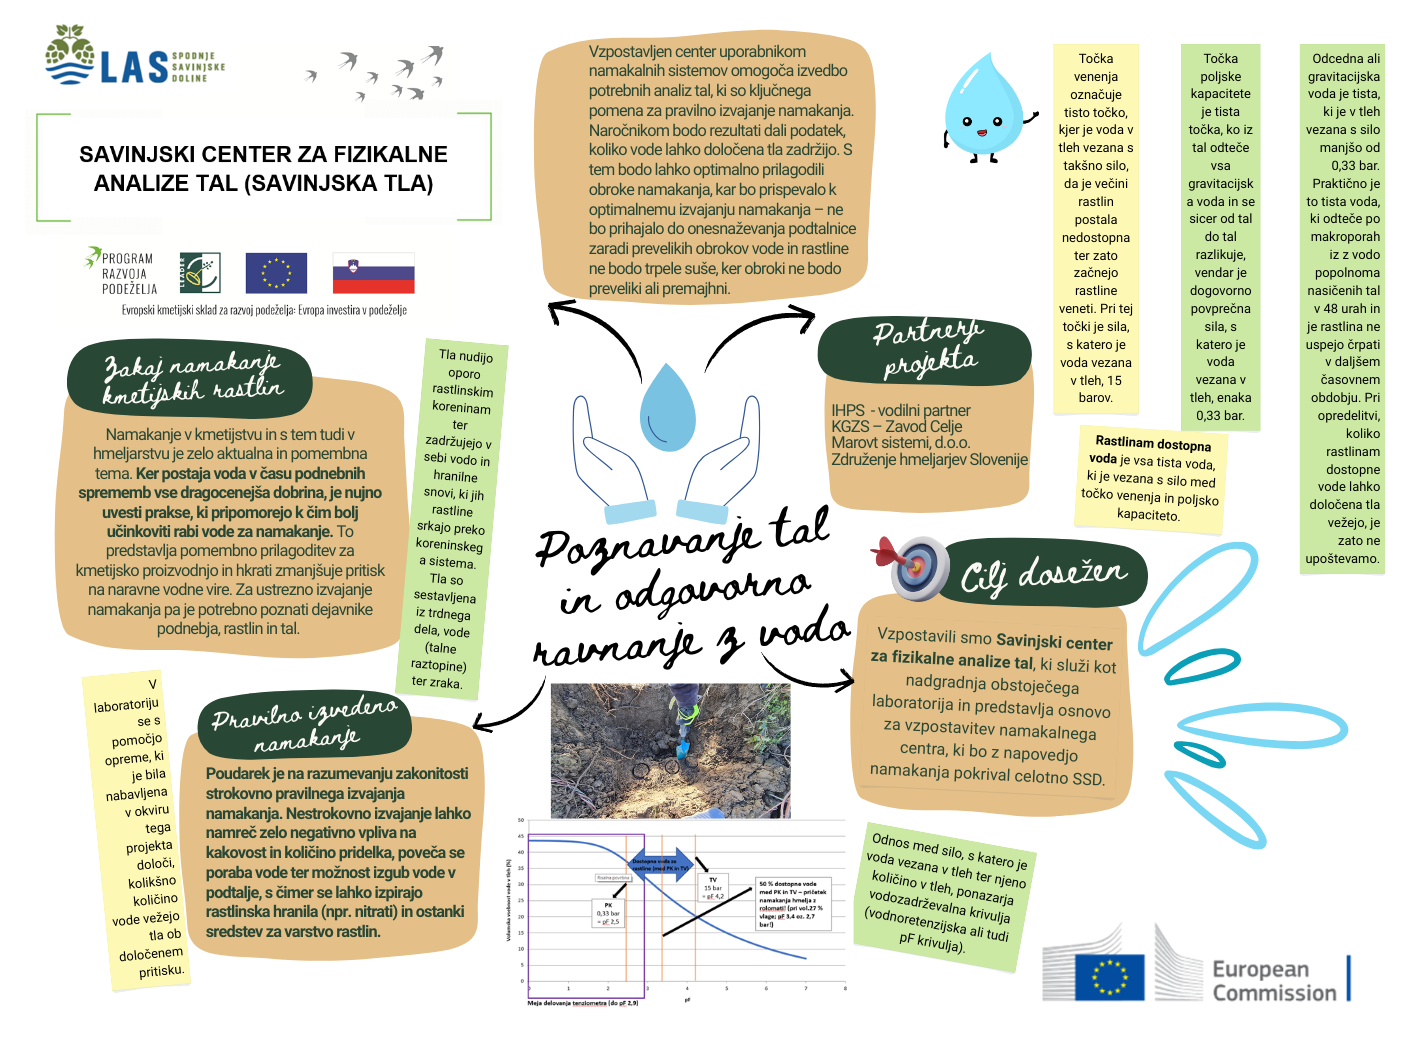 LAS SPODNJE
SAVINJSKE
DOLINE
SAVINJSKI CENTER ZA FIZIKALNE
ANALIZE TAL (SAVINJSKA TLA)
PROGRAM
RAZVOJA
PODEŽELJA
LEADER
Evropski kmetijski sklad za razvoj podeželja: Evropa investira v podeželje
Vzpostavljen center uporabnikom
namakalnih sistemov omogoča izvedbo
potrebnih analiz tal, ki so ključnega
pomena za pravilno izvajanje namakanja.
Naročnikom bodo rezultati dali podatek,
koliko vode lahko določena tla zadržijo. S
tem bodo lahko optimalno prilagodili
obroke namakanja, kar bo prispevalo k
optimalnemu izvajanju namakanja – ne
bo prihajalo do onesnaževanja podtalnice
zaradi prevelikih obrokov vode in rastline
ne bodo trpele suše, ker obroki ne bodo
preveliki ali premajhni.
Točka
venenja
označuje
tisto točko,
kjer je voda v
tleh vezana s
takšno silo,
da je večini
rastlin
postala
nedostopna
ter zato
začnejo
rastline
veneti. Pri tej
točki je sila,
s katero je
voda vezana
v tleh, 15
barov.
Točka
poljske
kapacitete
je tista
točka, ko iz
tal odteče
vsa
gravitacijsk
a voda in se
sicer od tal
do tal
razlikuje,
vendar je
dogovorno
povprečna
sila, s
katero je
voda
vezana v
tleh, enaka
0,33 bar.
Odcedna ali
gravitacijska
voda je tista,
ki je v tleh
vezana s silo
manjšo od
0,33 bar.
Praktično je
to tista voda,
ki odteče po
makroporah
iz z vodo
popolnoma
nasičenih tal
v 48 urah in
je rastlina ne
uspejo črpati
v daljšem
časovnem
obdobju. Pri
opredelitvi,
koliko
rastlinam
dostopne
vode lahko
določena tla
vežejo, je
zato ne
upoštevamo.
Zakaj namakanje
kmetijskih rastlin
Namakanje v kmetijstvu in s tem tudi v
hmeljarstvu je zelo aktualna in pomembna
tema. Ker postaja voda v času podnebnih
sprememb vse dragocenejša dobrina, je nujno
uvesti prakse, ki pripomorejo k čim bolj
učinkoviti rabi vode za namakanje. To
predstavlja pomembno prilagoditev za
kmetijsko proizvodnjo in hkrati zmanjšuje pritisk
na naravne vodne vire. Za ustrezno izvajanje
namakanja pa je potrebno poznati dejavnike
podnebja, rastlin in tal.
Tla nudijo
oporo
rastlinskim
koreninam
ter
zadržujejo v
sebi vodo in
hranilne
snovi, ki jih
rastline
srkajo preko
koreninskeg
a sistema.
Tla so
sestavljena
iz trdnega
dela, vode
(talne
raztopine)
ter zraka.
Partnerji
projekta
IHPS - vodilni partner
KGZS – Zavod Celje
Marovt sistemi, d.o.o.
Združenje hmeljarjev Slovenije
Rastlinam dostopna
voda je vsa tista voda,
ki je vezana s silo med
točko venenja in poljsko
kapaciteto.
Poznavanje tal
in odgovorno
ravnanje z vodo
Cilj dosežen
Vzpostavili smo Savinjski center
za fizikalne analize tal, ki služi kot
nadgradnja obstoječega
laboratorija in predstavlja osnovo
za vzpostavitev namakalnega
centra, ki bo z napovedjo
namakanja pokrival celotno SSD.
V
laboratoriju
se s
pomočjo
opreme, ki
je bila
nabavljena
v okviru
tega
projekta
določi,
kolikšno
količino
vode vežejo
tla ob
določenem
pritisku.
Pravilno izvedeno
namakanje
Poudarek je na razumevanju zakonitosti
strokovno pravilnega izvajanja
namakanja. Nestrokovno izvajanje lahko
namreč zelo negativno vpliva na
kakovost in količino pridelka, poveča se
poraba vode ter možnost izgub vode v
podtalje, s čimer se lahko izpirajo
rastlinska hranila (npr. nitrati) in ostanki
sredstev za varstvo rastlin.
50
45
40
35
30
25
20
15
10
5
0
0 1 2 3 4 5 6 7 8
pF
Dostopna voda za
rastline (med PK in TV)
PK
0,33 bar
= pF 2,5
TV
15 bar
= pF 4,2
50 % dostopne vode
med PK in TV – pričetek
namakanja hmelja z
rolomati! (pri vol.27 %
vlage; pF 3,4 oz. 2,7
bar!)
Meja delovanja tenziometra (do pF 2,9)
Odnos med silo, s katero je
voda vezana v tleh ter njeno
količino v tleh, ponazarja
vodozadrževalna krivulja
(vodnoretenzijska ali tudi
pF krivulja).
European
Commission